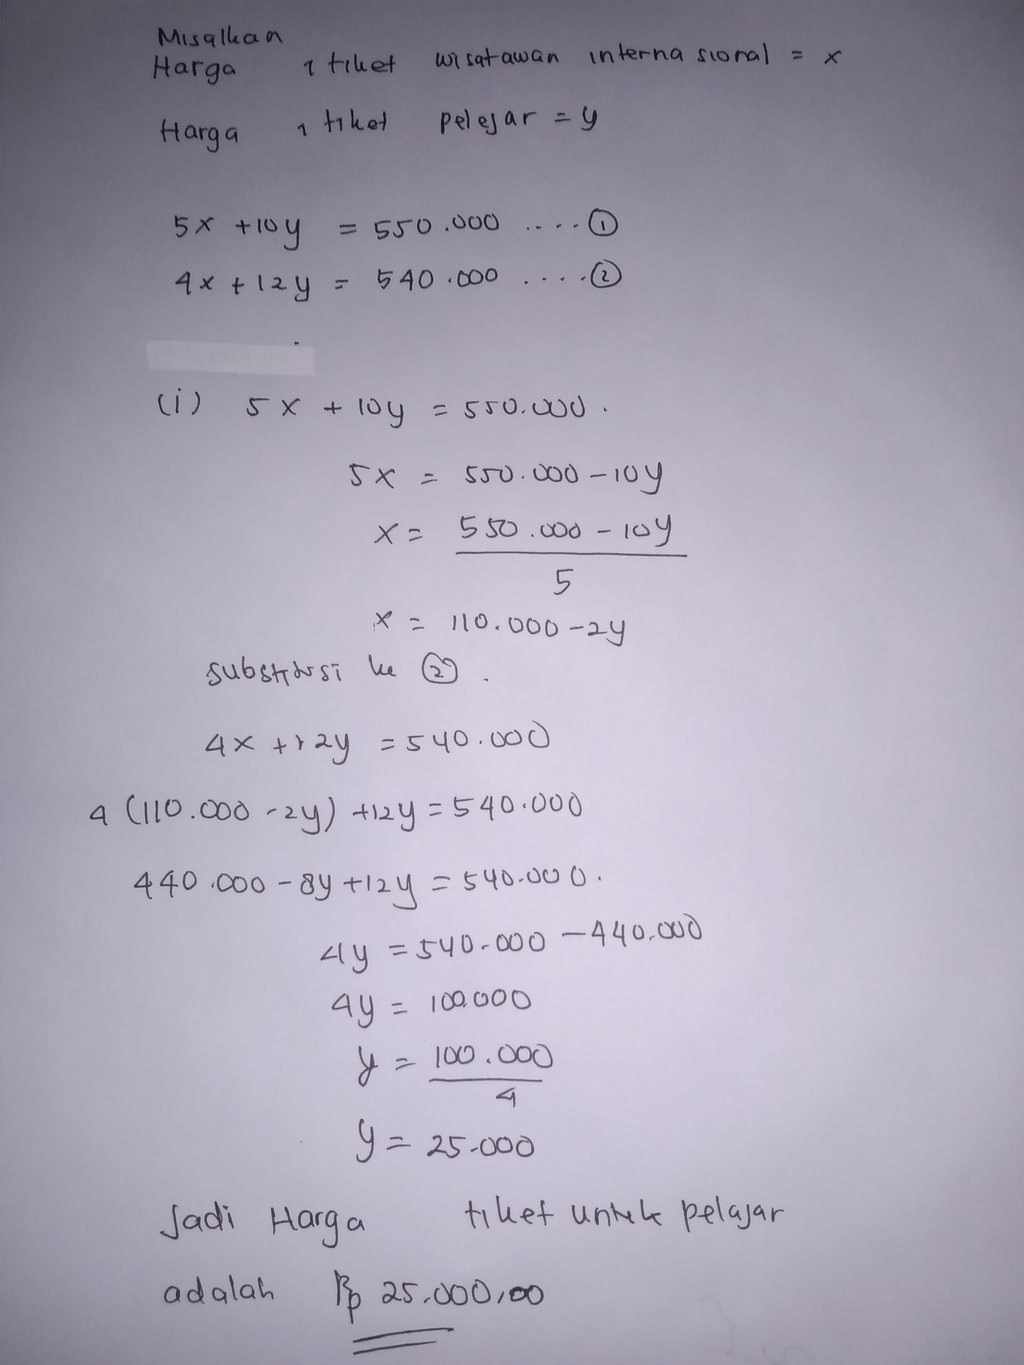 Misalkan
Harga 1 tiket wisatawan internasional = x
Harga 1 tiket pelejar = y
5x + 10y = 550.000 ....①
4x + 12y = 540.000 ....②
(i) 5x + 10y = 550.000.
5x = 550.000 - 10y
x = 550.000 - 10y
5
x = 110.000 - 2y
substitusi ke ②.
4x + 12y = 540.000
4 (110.000 - 2y) + 12y = 540.000
440.000 - 8y + 12y = 540.000.
4y = 540.000 - 440.000
4y = 100.000
y = 100.000
4
y = 25.000
Jadi Harga tiket untuk pelajar
adalah Rp 25.000,00